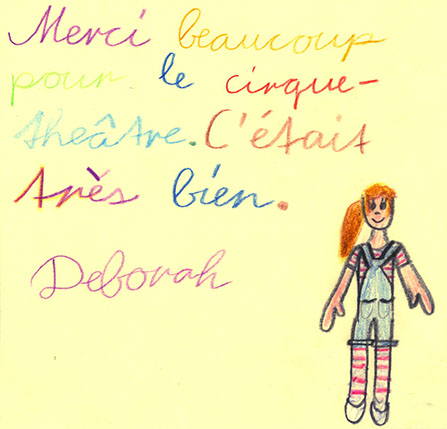 Merci beaucoup
pour le cirque-
theâtre. C'était
très bien.
Deborah